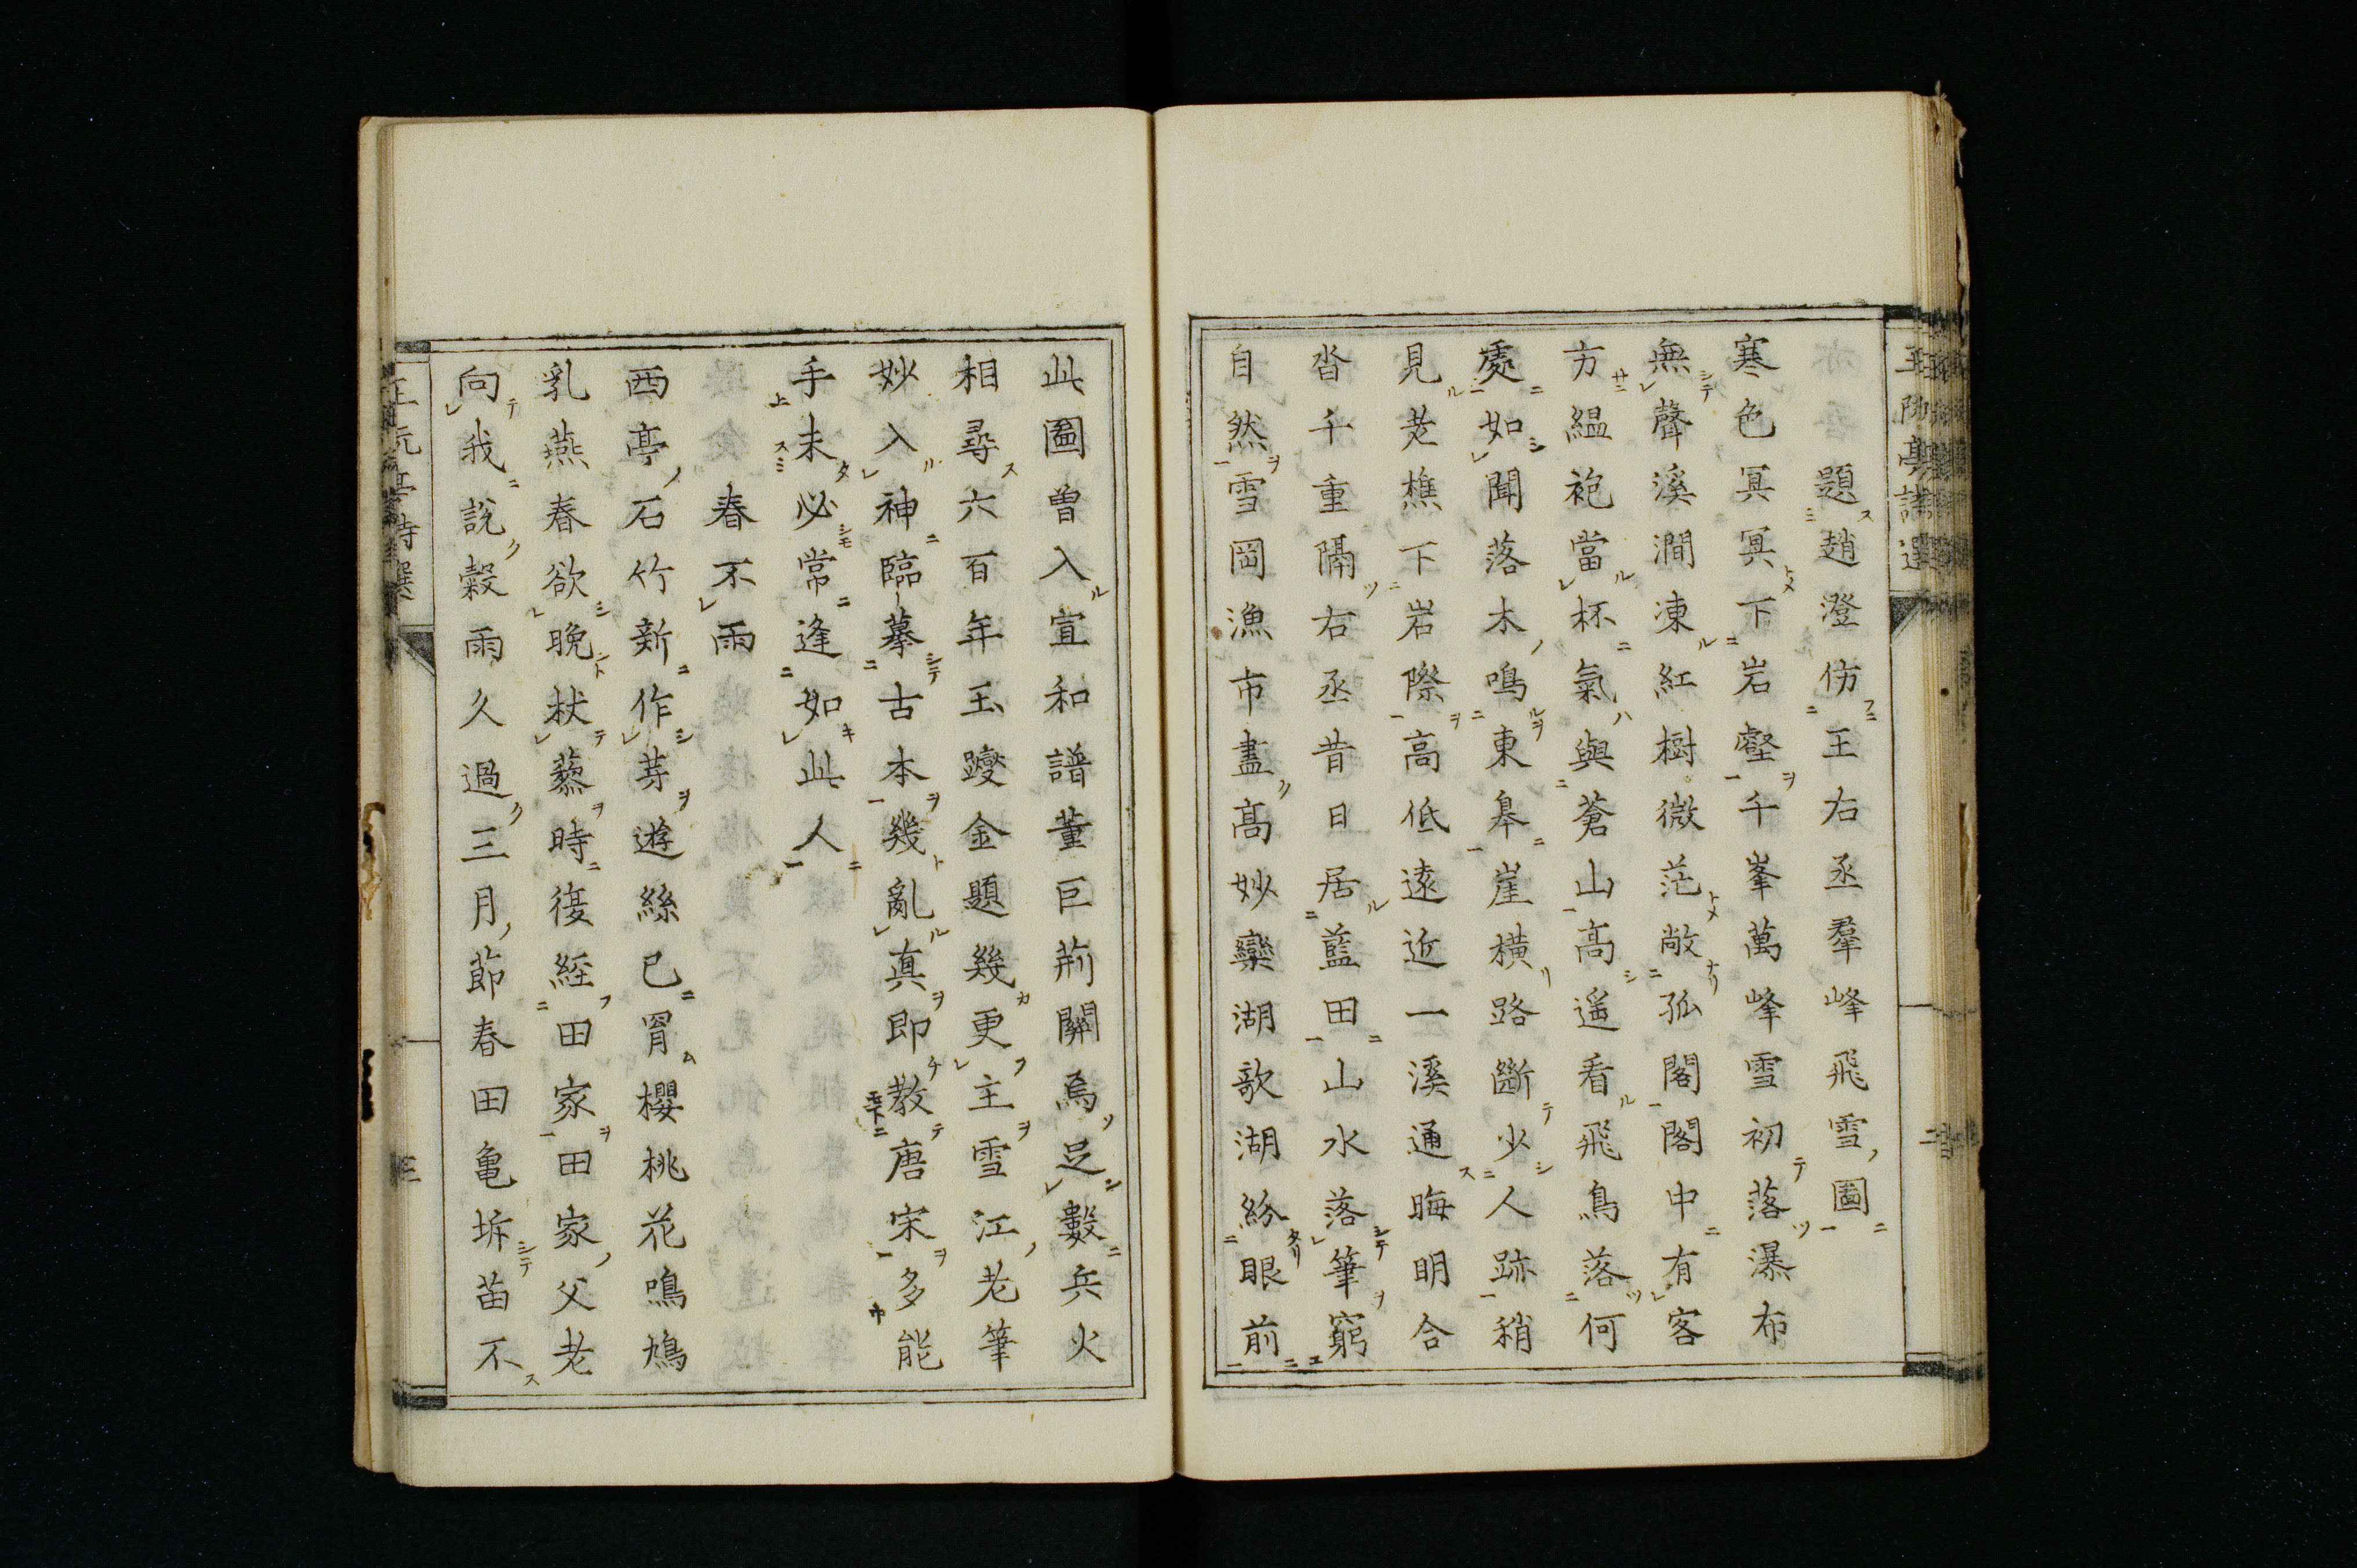 題趙澄仿王右丞羣峰飛雪圖
寒色冥冥下岩壑千峯萬峰雪初落瀑布
無聲溪澗凍紅樹微茫敞孤閣閣中有客
方縕袍當杯氣與蒼山高遥看飛鳥落何
處如聞落木鳴東皐崖橫路斷少人跡稍
見老樵下岩際高低遠近一溪通晦明合
沓千重隔右丞昔日居藍田山水落筆窮
自然雪岡漁市盡高妙欒湖歌湖紛眼前
此圖曽入宣和譜董巨荊關焉足數兵火
相尋六百年玉躞金題幾更主雪江老筆
妙入神臨摹古本幾亂真即教唐宋多能
手未必常逢如此人
春不雨
西亭石竹新作芽遊絲已罥櫻桃花鳴鳩
乳燕春欲晚杖藜時復經田家田家父老
向我說穀雨久過三月節春田亀坼苗不